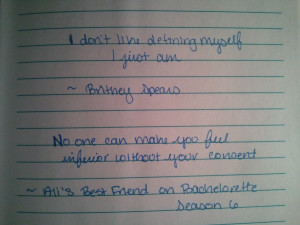 I don't like defining myself
I just am
~ Britney Spears
No one can make you feel
inferior without your consent
~ Ali's Best Friend on Bachelorette
Season 6